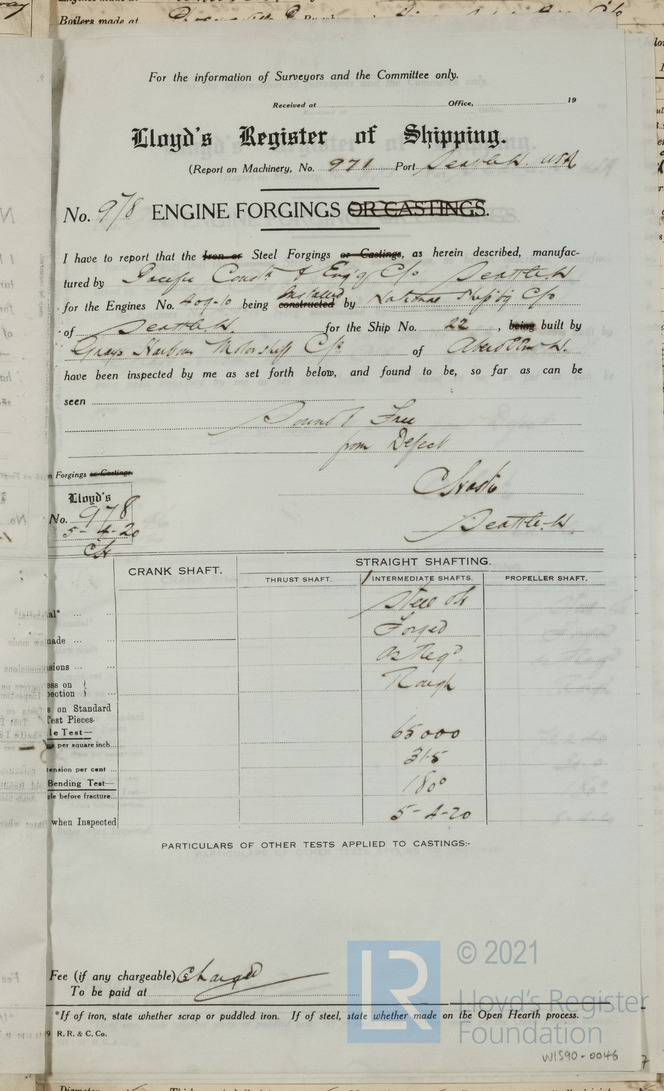 Boilers made at
For the information of Surveyors and the Committee only.
Received at Office, 19
Lloyd's Register of Shipping.
(Report on Machinery, No. 971 Port Seattle W. USA
No. 978 ENGINE FORGINGS OR CASTINGS.
I have to report that the Iron or Steel Forgings or Castings, as herein described, manufac-
tured by Pacific Const & Eng'g C/o Seattle W
for the Engines No. 409-10 being constructed installed by National Ship'g C/o
of Seattle W. for the Ship No. 22, being built by
Grays Harbour Motorship C/o of Aberdeen W.
have been inspected by me as set forth below, and found to be, so far as can be
seen
Sound & Free
from Defect
Seattle W.
n Forgings or Castings.
Lloyd's
No. 978
5-4-20
CRANK SHAFT.
STRAIGHT SHAFTING.
THRUST SHAFT.
INTERMEDIATE SHAFTS.
PROPELLER SHAFT.
al* Steel OH
made Forged
sions as Req'd
ess on
pection Rough
s on Standard
Test Pieces.
le Test—
s per square inch 65000
tension per cent 31.5
Bending Test—
gle before fracture 180°
when Inspected 5-4-20
PARTICULARS OF OTHER TESTS APPLIED TO CASTINGS:-
Fee (if any chargeable) Charged
To be paid at
*If of iron, state whether scrap or puddled iron. If of steel, state whether made on the Open Hearth process.
R. R. & C. Co.
LR
© 2021
Lloyd's Register
Foundation
W1590-0046